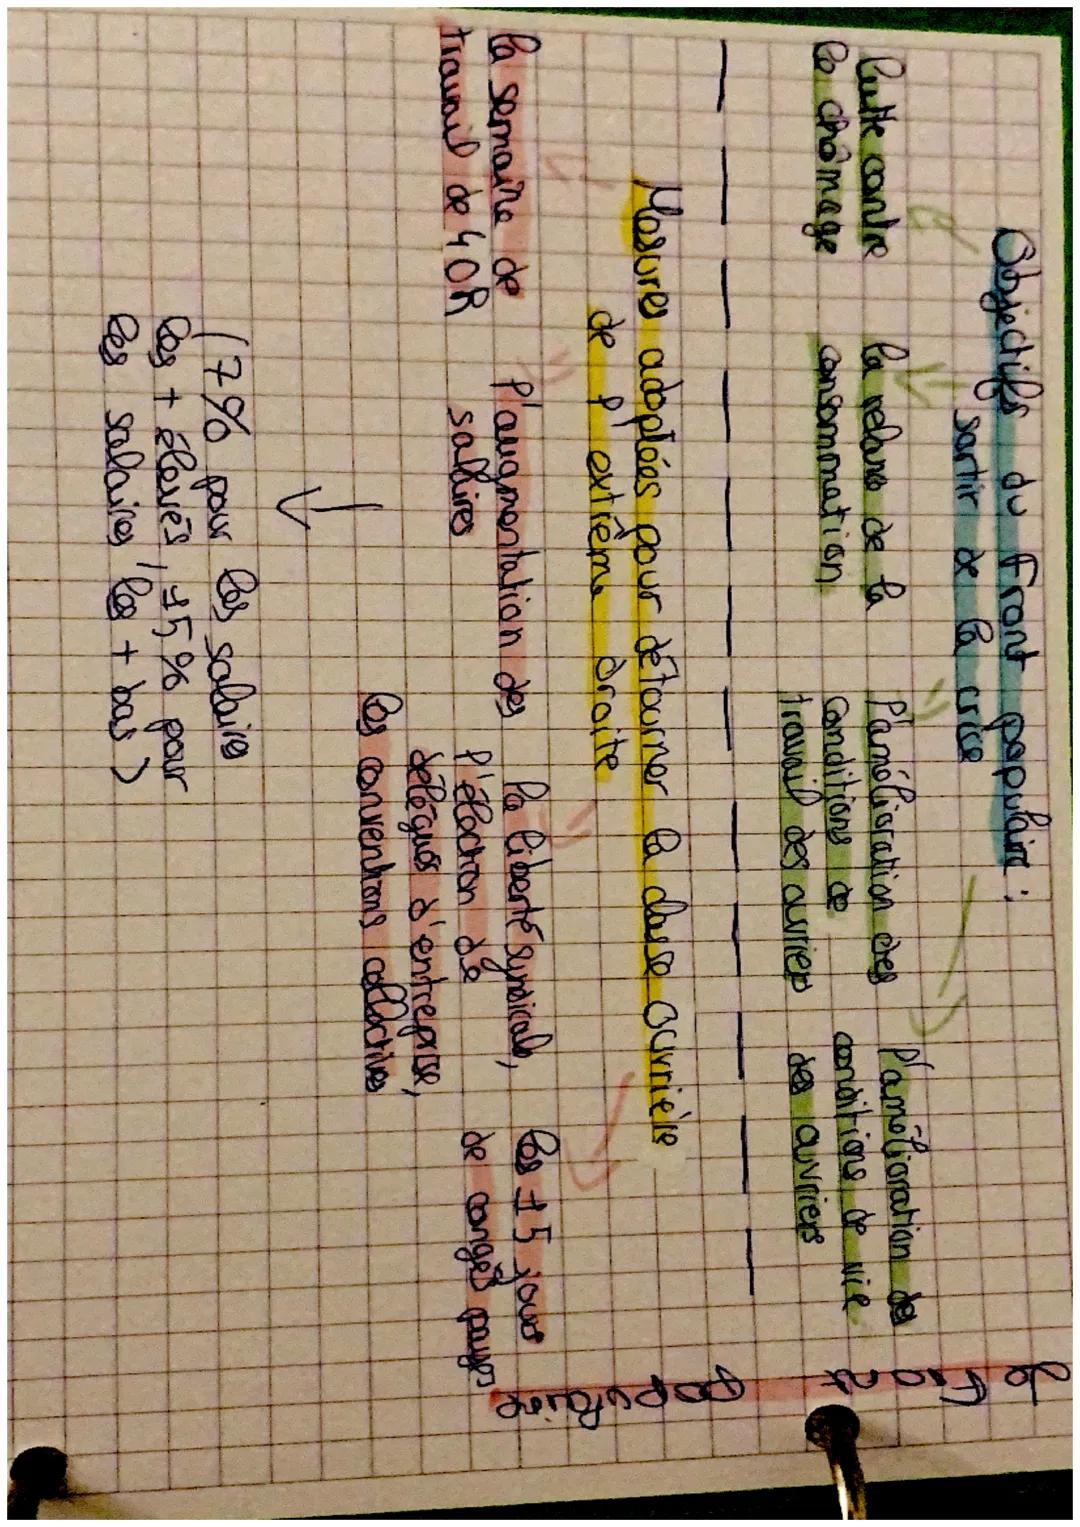 Le Front populaire
Objectifs du Front populaire :
sortir de la crise
lutte contre
le chômage
la relance de la
consommation
l'amélioration des
conditions de
travail des ouvriers
l'amélioration des
conditions de vie
des ouvriers
Mesures adoptées pour détourner la classe ouvrière
de l'extrême droite
la semaine de
travail de 40h
l'augmentation des
salaires
la liberté syndicale,
l'élection de
délégués d'entreprise,
les conventions collectives
les 15 jours
de congés payés
(7% pour les salaires
les + élevés, 15% pour
les salaires les + bas)